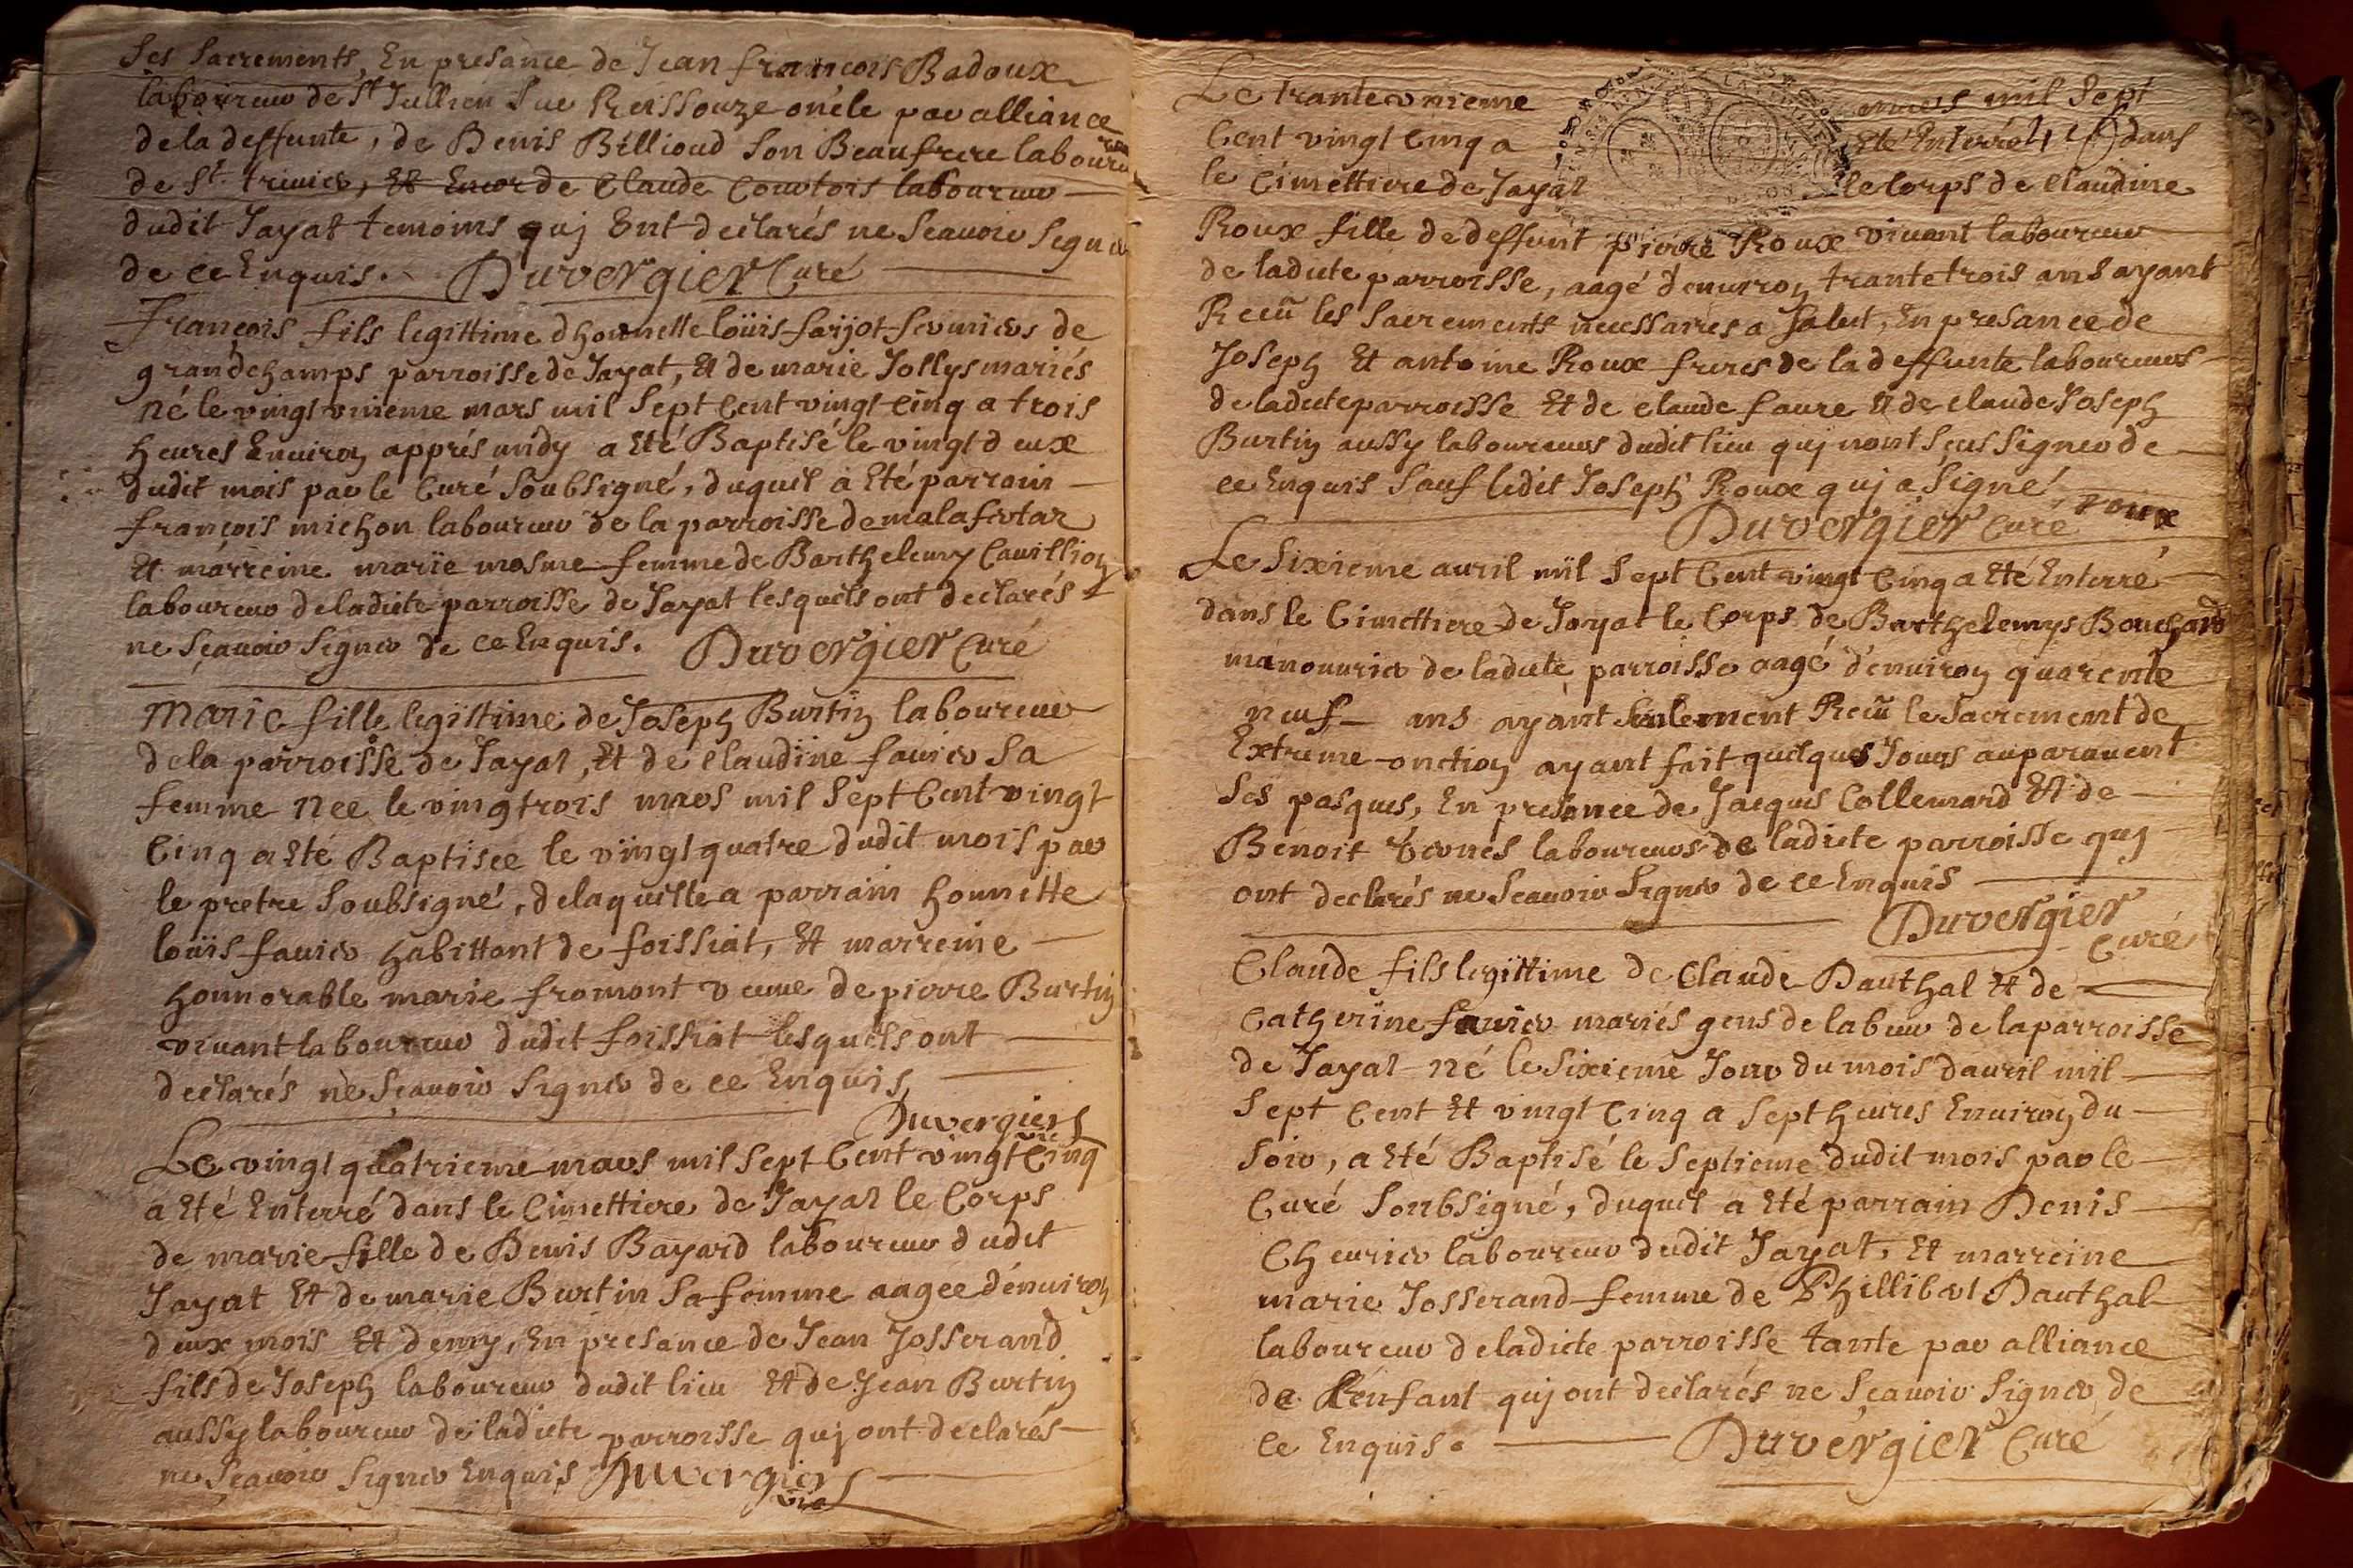 Ses Sacrements, En presance de Jean francois Badoux
laboureur de St Jullien Sur Reissouze oncle par alliance
de la deffunte, de Denis Billioud Son Beaufrere laboureur
de St. trivier, Et Encor de Claude Courtois laboureur
dudit Jayat temoins quj Ent declarés ne Scauoir Signer
de ce Enquis. Duvergier Curé
François fils legittime dhonnette loüis farjot fermier de
grandchamps parroisse de Jayat, Et de marie Jollys mariés
né le vingt vnieme mars mil Sept Cent vingt Cinq a trois
heures Enuiron apprés midy a Eté Baptisé le vingt deux
dudit mois par le Curé Soubsigné, duquel à Eté parrain
françois michon laboureur de la parroisse de malafretaz
Et marreine marïe mosme femme de Barthelemy Cauillion
laboureur deladicte parroisse de Jayat lesquels ont declarés
ne Sçauoir Signer de ce Enquis. Duvergier Curé
Marie fille legittime de Joseph Burtin laboureur
dela parroisse de Jayat, Et de claudine faurier Sa
femme née le vingtrois mars mil Sept Cent vingt
Cinq a Eté Baptisée le vingt quatre dudit mois par
le pretre Soubsigné, delaquelle a parrain honnette
loüis faurier habittant de foissiat, Et marreine
honnorable marie fromont veuue de pierre Burtin
viuant laboureur dudit foissiat lesquels ont
declarés ne Sçauoir Signer de ce Enquis
Duvergier
Le vingt quatrieme mars mil Sept Cent vingt Cinq
a Eté Enterré dans le Cimettiere de Jayat le Corps
de marie fille de Denis Bayard laboureur dudit
Jayat Et de marie Burtin Sa femme aagee dénuiron
deux mois Et demy, En presance de Jean Josserand
fils de Joseph laboureur dudit lieu Et de Jean Burtin
aussy laboureur de ladicte parroisse quj ont declarés
ne Sçauoir Signer Enquis Duvergier
Le trante vnieme mars mil Sept
Cent vingt Cinq a Eté Enterré dans
le Cimettiere de Jayat le Corps de claudine
Roux fille de deffunt pierre Roux viuant laboureur
de ladicte parroisse, aagé denuiron trante trois ans ayant
Receü les Sacrements necessaires a Salut, En presance de
Joseph Et antoine Roux freres de la deffunte laboureurs
de ladicte parroisse Et de claude faure Et de claude Joseph
Burtin aussy laboureurs dudit lieu quj nont Sceus Signer de
ce Enquis Sauf ledit Joseph Roux quj a Signé
Duvergier Curé roux
Le Sixieme auril mil Sept Cent vingt Cinq a Eté Enterré
dans le Cimettiere de Jayat le Corps de Barthelemys Bouchard
manouurier de ladicte parroisse aagé d'enuiron quarente
neuf ans ayant Seulement Receü le Sacrement de
Extreme-onction ayant fait quelques Jours auparauent
Ses pasques, En presance de Jacques Collemard Et de
Benoit laboureurs de ladicte parroisse quj
ont declarés ne Scauoir Signer de ce Enquis
Duvergier
Curé
Claude fils legittime de Claude Dauthal Et de
Catherine faurier mariés gens de labeur de la parroisse
de Jayat né le Sixieme Jour du mois dauril mil
Sept Cent Et vingt Cinq a Sept heures Enuiron du
Soir, a Eté Baptisé le Septieme dudit mois par le
Curé Soubsigné, duquel a Eté parrain Denis
Cheurier laboureur dudit Jayat, Et marreine
marie Josserand femme de Phillibert Dauthal
laboureur deladicte parroisse tante par alliance
de L'enfant quj ont declarés ne Sçauoir Signer de
ce Enquis. Duvergier Curé